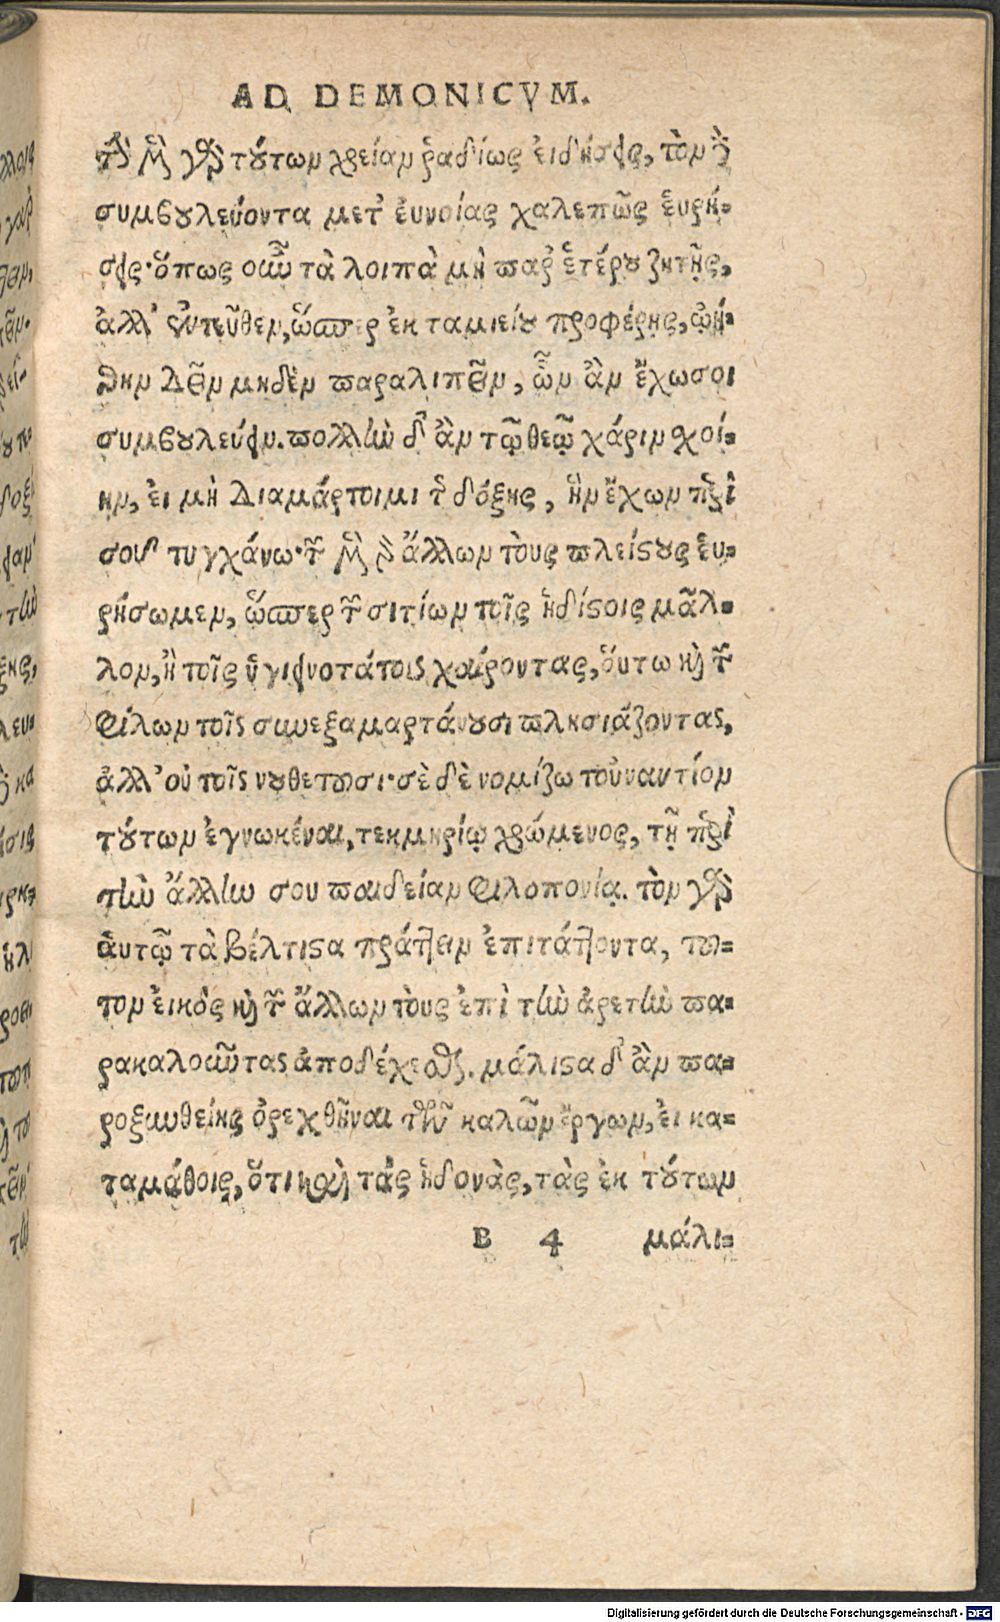 AD DEMONICVM.
τὴν μὲν γὰρ τούτων χρείαν ῥαδίως εἰδήσεις, τὸν δὲ
συμβουλεύοντα μετ' ἐυνοίας χαλεπῶς ἑυρή-
σεις· ὅπως οὖν τὰ λοιπὰ μὴ παρ' ἑτέρου ζητῇς,
ἀλλ' ἐντεῦθεν, ὥσπερ ἐκ ταμιείου προφέρῃς, ᾠή-
θην δεῖν μηδὲν παραλιπεῖν, ὧν ἂν ἔχω σοι
συμβουλεύειν. πολλὴν δ' ἂν τῷ θεῷ χάριν σχοί-
ην, ἐι μὴ διαμάρτοιμι τῆς δόξης, ἣν ἔχων περὶ
σοῦ τυγχάνω· τῶν μὲν γὰρ ἄλλων τοὺς πλείστους ἑυ-
ρήσωμεν, ὥσπερ τῶν σιτίων τοῖς ἡδίστοις μᾶλ-
λον, ἢ τοῖς ὑγιεινοτάτοις χαίροντας, ὅυτω καὶ τῶν
φίλων τοῖς συνεξαμαρτάνουσι πλησιάζοντας,
ἀλλ' οὐ τοῖς νουθετοῦσι· σὲ δὲ νομίζω τοὐναντίον
τούτων ἐγνωκέναι, τεκμηρίῳ χρώμενος, τῇ περὶ
τὴν ἄλλην σου παιδείαν φιλοπονίᾳ. τὸν γὰρ
ἁυτῷ τὰ βέλτιστα πράττειν ἐπιτάττοντα, τοῦ-
τον ἐικὸς καὶ τῶν ἄλλων τοὺς ἐπὶ τὴν ἀρετὴν πα-
ρακαλοῦντας ἀποδέχεσθαι. μάλιστα δ' ἂν πα-
ροξυνθείης ὀρεχθῆναι τῶν καλῶν ἔργων, ἐι κα-
ταμάθοις, ὅτι καὶ τὰς ἡδονὰς, τὰς ἐκ τούτων
B 4 μάλι-
Digitalisierung gefördert durch die Deutsche Forschungsgemeinschaft - DFG